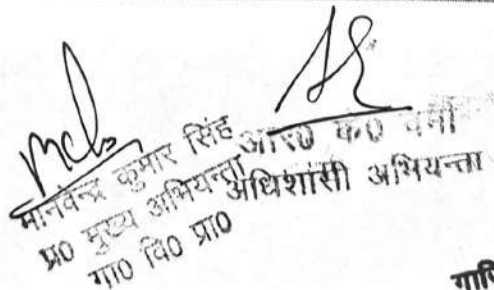 मानवेन्द्र कुमार सिंह
प्र० मुख्य अभियन्ता
गा० वि० प्रा०
आर० के० वर्मा
अधिशासी अभियन्ता